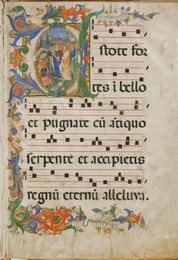 stote for
tes i bello
et pugnate cū ātiquo
serpente et accipietis
regnū eternū alleluya.